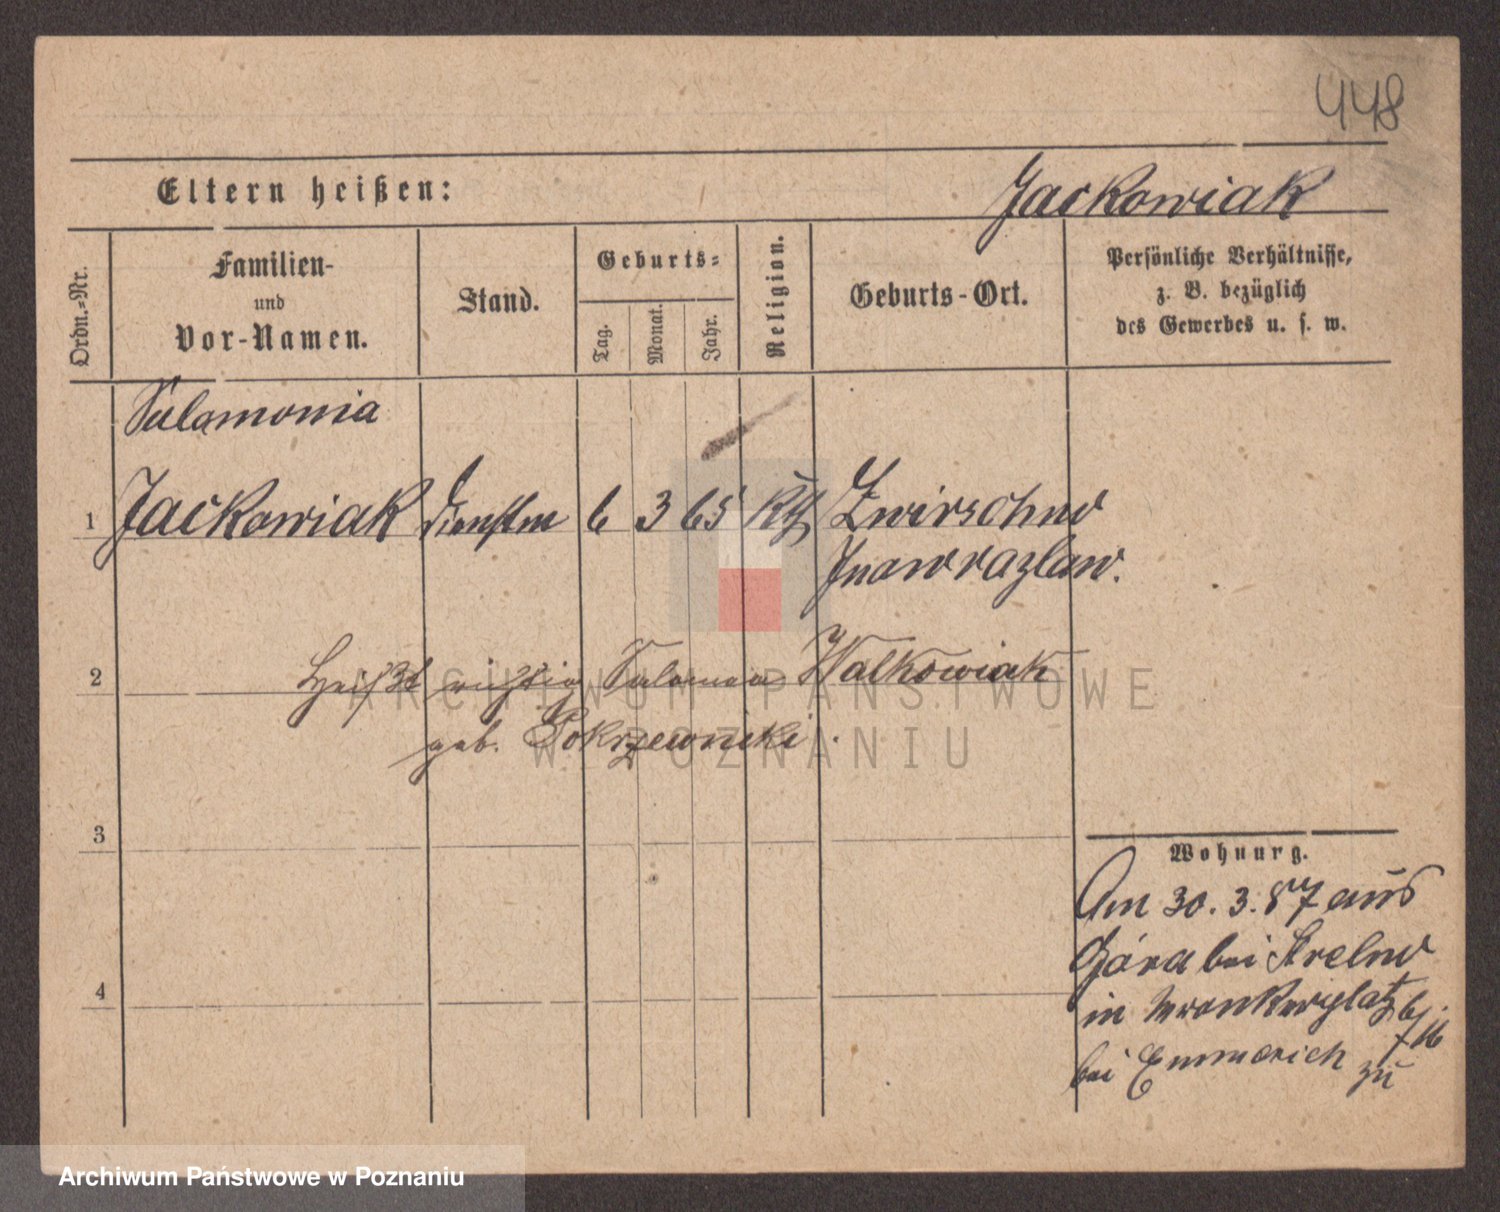 448
Eltern heißen:
Jackowiak
Ordn.-Nr.
Familien-
und
Vor-Namen.
Stand.
Geburts-
Tag.
Monat.
Jahr.
Religion.
Geburts-Ort.
Persönliche Verhältnisse,
z. B. bezüglich
des Gewerbes u. s. w.
Salamonia
1 Jackowiak 6 3 65 kth
Inowrazlaw.
2 Heißt richtig Walkowiak
geb.
3
Wohnung.
Am 30. 3. 87 aus
Góra bei Strelno
4
in Wronkerplatz
bei Emmerich zu
ARCHIWUM PAŃSTWOWE
W POZNANIU
Archiwum Państwowe w Poznaniu